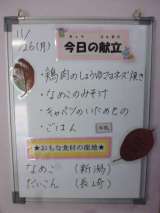 11/26(月)
今日の献立
・鶏肉のしょうゆマヨネーズ焼き
・なめこのみそ汁
・キャベツのいためもの
・ごはん
★おもな食材の産地★
なめこ（新潟）
だいこん（長上町）